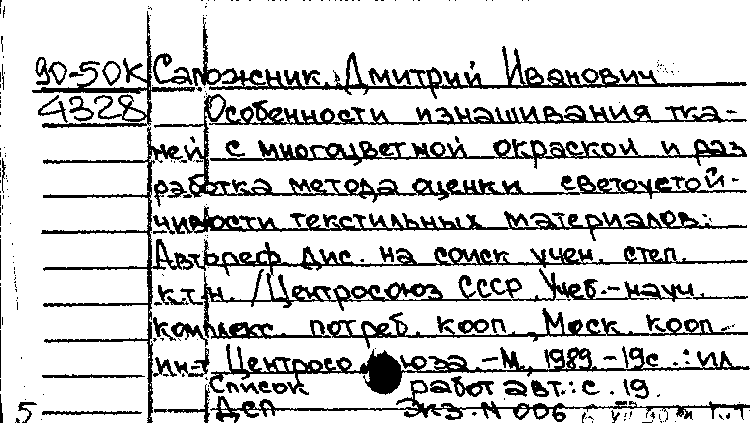 90-50К Сапожник, Дмитрий Иванович
4328 Особенности изнашивания тка-
ней с многоцветной окраской и раз
работка метода оценки светоустой-
чивости текстильных материалов:
Автореф. дис. на соиск учен. степ.
к.т.н. /Центросоюз СССР, Учеб.-науч.
комплекс. потреб. кооп., Моск. кооп-
ин-т Центросоюза. -М., 1989. -19с. : ил
Список работ авт.: с. 19.
5 ДСП Экз. N 006